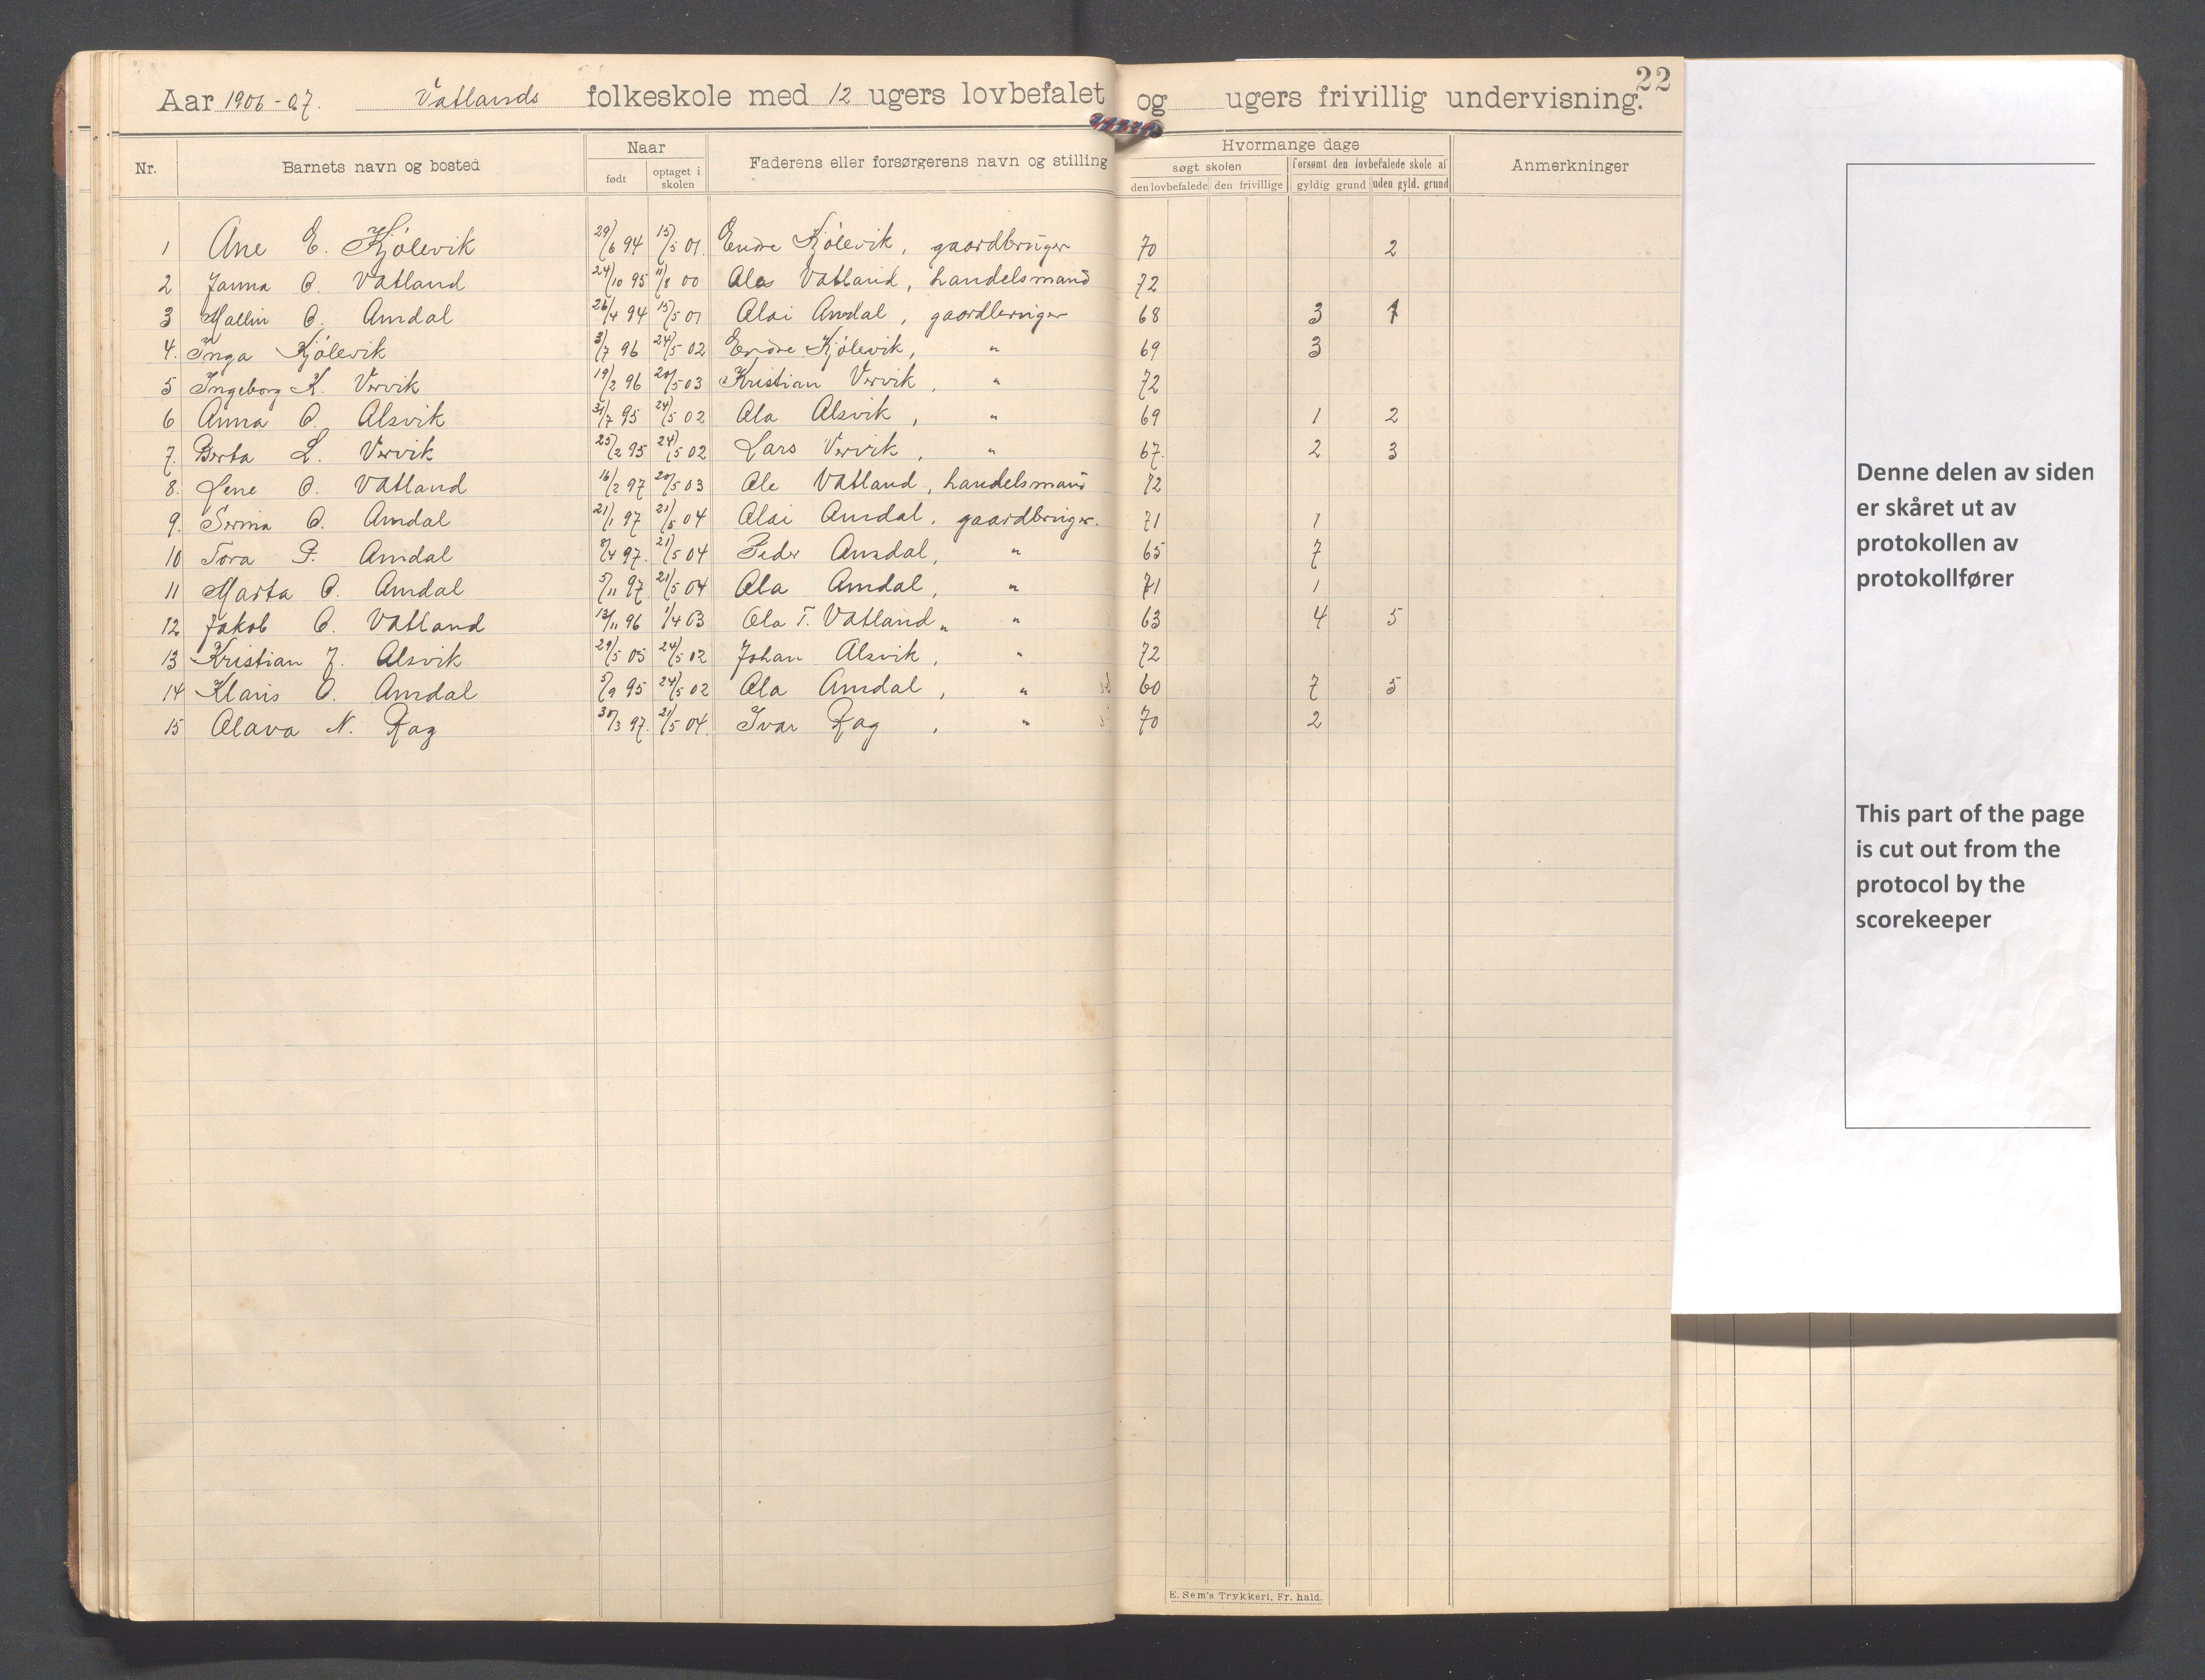 22
Aar 1906-07. Vatlands folkeskole med 12 ugers lovbefalet og ugers frivillig undervisning.
Nr. Barnets navn og bosted Naar født optaget i skolen Faderens eller forsørgerens navn og stilling Hvormange dage søgt skolen den lovbefalede den frivillige forsømt den lovbefalede skole af gyldig grund uden gyld. grund Anmerkninger
1 Ane E. Kjølevik 29/6 94 15/5 01. Endre Kjølevik, gaardbruger 70 2
2 Janna O. Vatland 24/10 95 11/8 00 Ole Vatland, handelsmand 72
3 Mallin O. Amdal 26/4 94 15/5 01 Olai Amdal, gaardbruger 68 3 1
4. Inga Kjølevik 3/7 96 24/5 02 Endre Kjølevik, " 69 3
5 Ingeborg K. Vervik 19/2 96 20/5 03 Kristian Vervik, " 72
6 Anna O. Alsvik 31/7 95 24/5 02 Ola Alsvik, " 69 1 2
7. Berta L. Vervik 25/2 95 24/5 02 Lars Vervik, " 67. 2 3
8. Lene O. Vatland 16/2 97 20/5 03 Ole Vatland, handelsmand 72
9. Serina O. Amdal 21/1 97 21/5 04 Olai Amdal, gaardbruger. 71 1
10 Tora P. Amdal 8/4 97. 21/5 04 Peder Amdal, " 65 7
11 Marta O. Amdal 5/11 97 21/5 04 Ola Amdal, " 71 1
12 Jakob O. Vatland 13/11 96 1/4 03 Ola T. Vatland " " 63 4 5
13 Kristian J. Alsvik 29/5 05 24/5 02 Johan Alsvik, " 72
14 Klaris O. Amdal 5/9 95 24/5 02 Ola Amdal, " 60 7 5
15 Olava N. Rag 30/3 97. 21/5 04. Ivar Rag, " 70 2
E. Sem's Trykkeri, Fr. hald.
Denne delen av siden
er skåret ut av
protokollen av
protokollfører
This part of the page
is cut out from the
protocol by the
scorekeeper